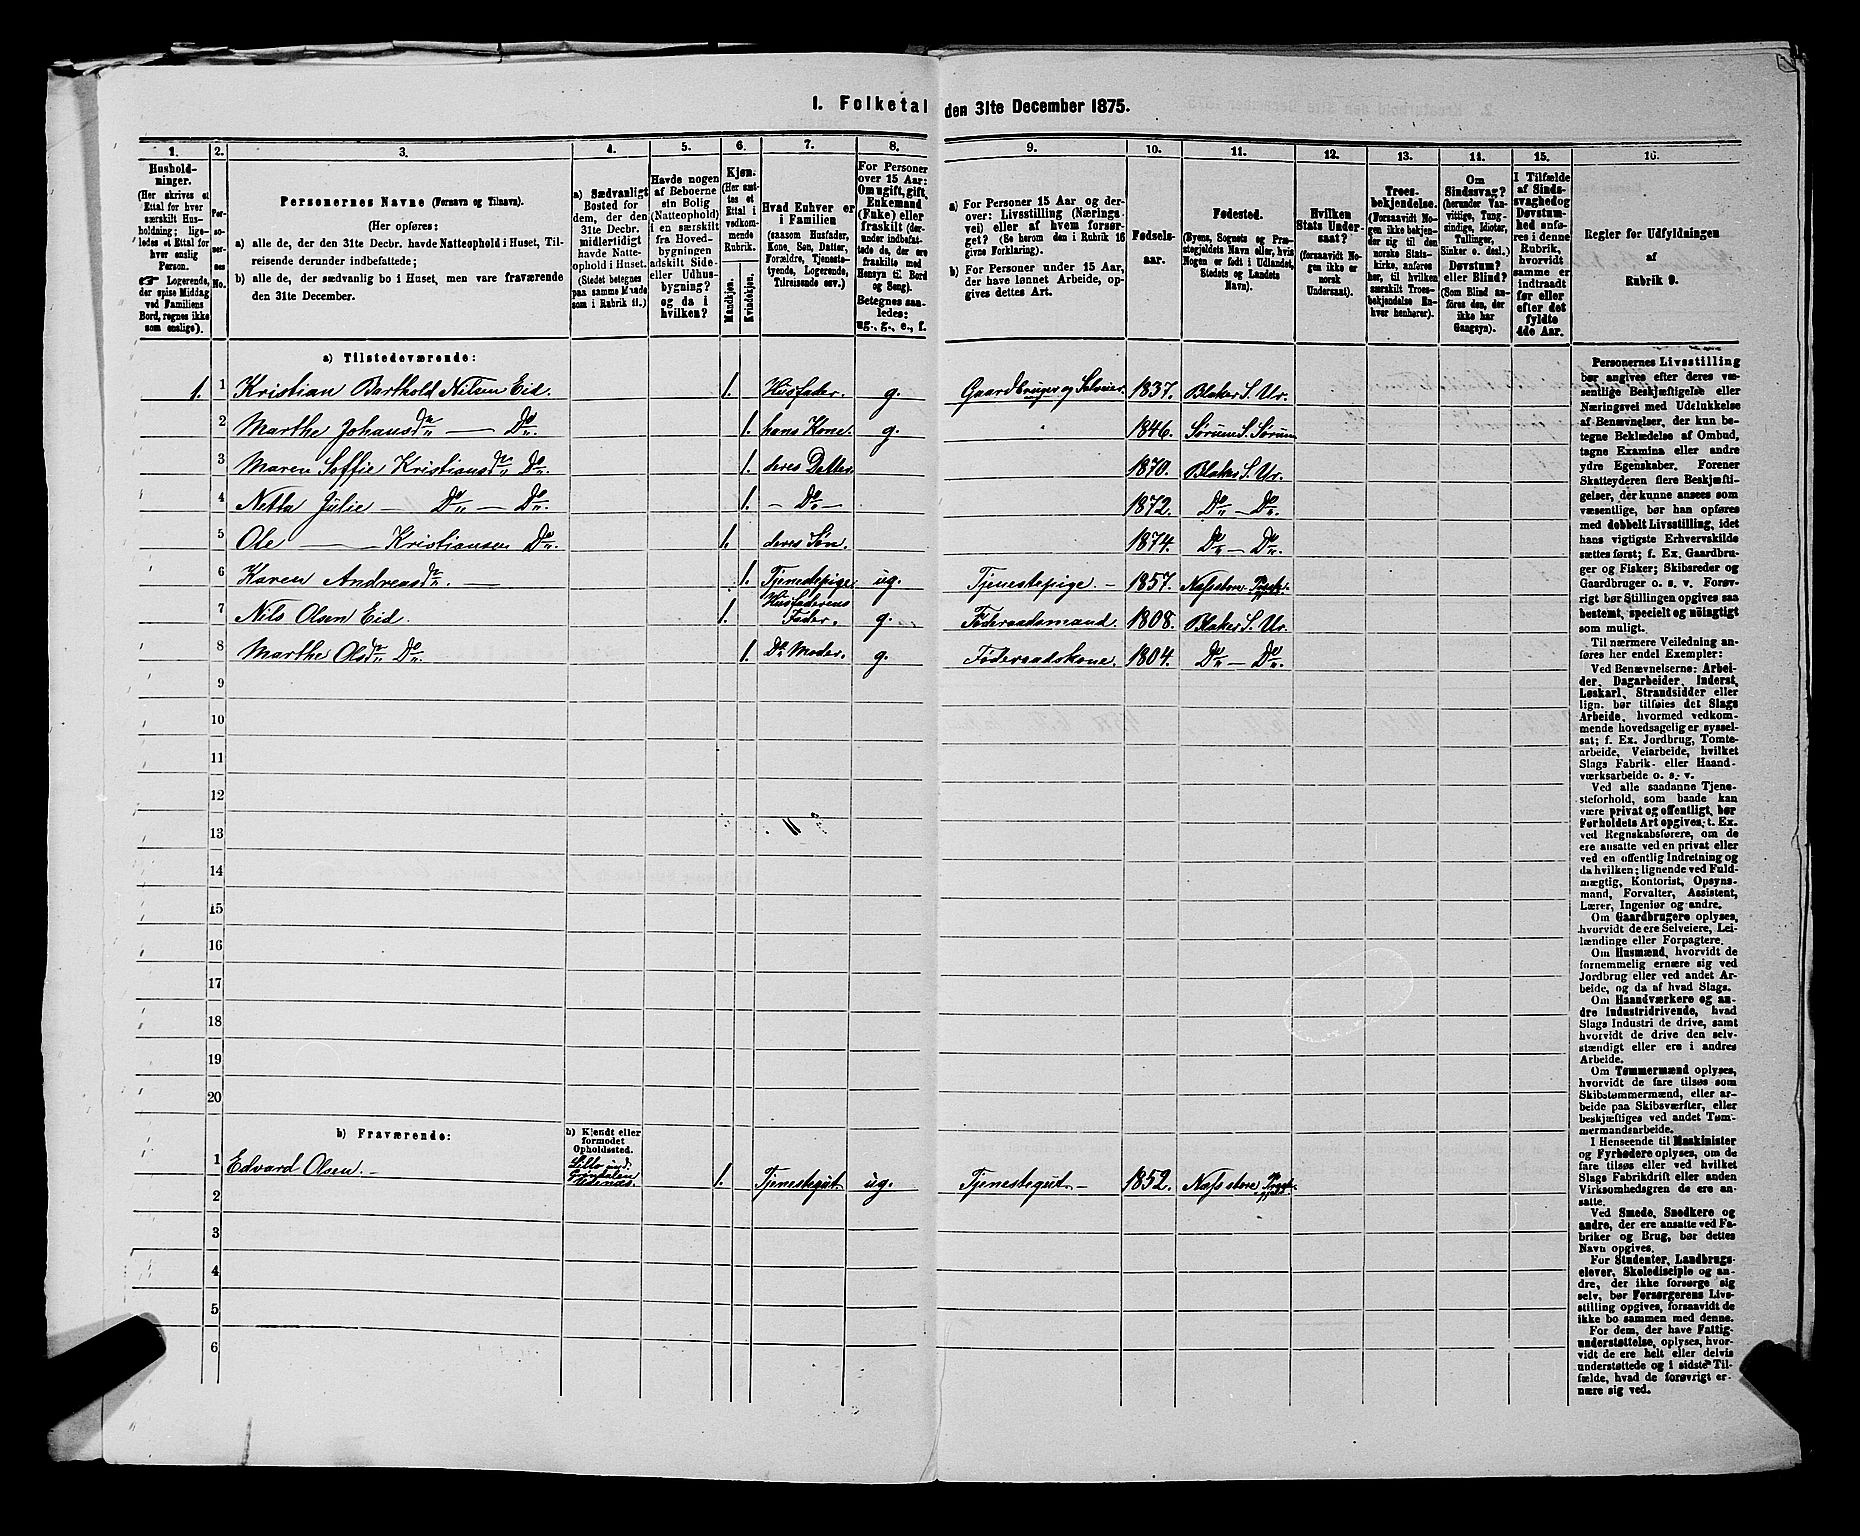 1. Folketal den 31te December 1875.
1. 2. 3. 4. 5. 6. 7. 8. 9. 10. 11. 12. 13. 14. 15. 16.
Husholdninger.
(Her skrives et
Ettal for hver
særskilt Husholdning;
ligeledes et Ettal for
hver enslig
Person.
☞ Logerende,
der spise Middag
ved Familiens
Bord, regnes ikke
som enslige).
Personernes No.
Personernes Navne (Fornavn og Tilnavn).
(Her opføres:
a) alle de, der den 31te Decbr. havde Natteophold i Huset, Tilreisende derunder indbefattede;
b) alle de, der sædvanlig bo i Huset, men vare fraværende
den 31te December.
a) Sædvanligt
Bosted for
dem, der den
31te Decbr.
midlertidigt
havde Natteophold i Huset.
(Stedet betegnes
paa samme Maade
som i Rubrik 11.)
Havde nogen
af Beboerne
sin Bolig
(Natteophold)
i en særskilt
fra Hovedbygningen
adskilt Side-
eller Udhusbygning?
og da i
hvilken?
Kjøn.
(Her sættes et
Ettal i
vedkommende
Rubrik.
Mandkjøn.
Kvindekjøn.
Hvad Enhver er
i Familien
(saasom Husfader,
Kone, Søn, Datter,
Forældre, Tjenestetyende, Logerende,
Tilreisende osv.)
For Personer
over 15 Aar:
Om ugift, gift,
Enkemand
(Enke) eller
fraskilt (derunder indbefattede, der ere
fraskilte med
Hensyn til Bord
og Seng).
Betegnes saaledes:
ug., g., e., f.
a) For Personer 15 Aar og derover: Livsstilling (Næringsvei) eller af hvem forsørget? (Se herom den i Rubrik 16
givne Forklaring).
b) For Personer under 15 Aar,
der have lønnet Arbeide, opgives dettes Art.
Fødselsaar.
Fødested.
(Byens, Sognets og Præstegjeldets Navn eller, hvis
Nogen er født i Udlandet,
Stedets og Landets
Navn).
Hvilken
Stats Undersaat?
(forsaavidt Nogen ikke er
norsk
Undersaat).
Troesbekjendelse.
(Forsaavidt Nogen ikke bekjender sig til den
norske Statskirke, anføres
her, til hvilken
særskilt Troesbekjendelse Enhver henhører).
Om
Sindssvag?
(herunder Vanvittige, Tungsindige, Idioter,
Tullinger,
Sinker o. desl.)
Døvstum?
eller Blind?
(Som Blind anføres den, der
ikke har
Gangsyn).
I Tilfælde
af Sindssvaghed og
Døvstumhed anføres i denne
Rubrik,
hvorvidt
samme er
indtraadt
før eller
efter det
fyldte
4de Aar.
Regler for Udfyldningen
af
Rubrik 9.
a) Tilstedeværende:
1. 1 Kristian Barthold Nilsen Eid. 1. Husfader. g. Gaardbruger og Selveier. 1837. Blaker S. Ur.
2 Marthe Johansdn — Do. 1. hans Kone. g. 1846. Sørum S. Sørum
3 Maren Soffie Kristiansdn Do. 1. deres Datter 1870. Blaker S. Ur.
4 Netta Julie — Do — Do. 1. — Do — 1872. Do — Do.
5 Ole — Kristiansen Do. 1. deres Søn. 1874. Do — Do.
6 Karen Andreasdn. — 1. Tjenestepige ug. Tjenestepige. — 1857. Næsstore Præstegj.
7 Nils Olsen Eid. 1. Husfaderens Fader. g. Føderaadsmand. 1808. Blaker S. Ur
8 Marthe Olsdn Do. 1. Ds Moder. g. Føderaadskone. 1804. Do — Do.
9
10
11
12
13
14
15
16
17
18
19
20
b) Fraværende:
b) Kjendt eller
formodet
Opholdssted.
1 Edvard Olsen. — 1. Tjenestegut ug. Tjenestegut — 1852. Næsstore Præstegjeld.
2
3
4
5
6
Personernes Livsstilling
bør angives efter deres væsentlige Beskjæftigelse eller
Næringsvei med Udelukkelse
af Benævnelser, der kun betegne Beklædelse af Ombud,
tagne Examina eller andre
ydre Egenskaber. Forener
Skatteyderen flere Beskjæftigelser, der kunne ansees som
væsentlige, bør han opføres
med dobbelt Livsstilling, idet
hans vigtigste Erhvervskilde
sættes først; f. Ex. Gaardbruger og Fisker; Skibsreder og
Gaardbruger o. s. v. Forøvrigt bør Stillingen opgives saa
bestemt, specielt og nøiagtigt
som muligt.
Til nærmere Veiledning anføres her endel Exempler:
Ved Benævnelserne: Arbeider, Dagarbeider, Inderst,
Løskarl, Strandsidder eller
lign. bør tilføies det Slags
Arbeide, hvormed vedkommende hovedsagelig er sysselsat; f. Ex. Jordbrug, Tomtearbeide, Veiarbeide, hvilket
Slags Fabrik- eller Haandværksarbeide o. s. v.
Ved alle saadanne Tjenesteforhold, som baade kan
være privat og offentligt, bør
Forholdets Art opgives, t. Ex.
ved Regnskabsførere, om de
ere ansatte ved en privat eller
ved en offentlig Indretning og
da hvilken; lignende ved Fuldmægtig, Kontorist, Opsynsmand, Forvalter, Assistent,
Lærer, Ingeniør og andre.
Om Gaardbrugere oplyses,
hvorvidt de ere Selveiere, Leilændinge eller Forpagtere.
Om Husmænd, hvorvidt de
fornemmelig ernære sig ved
Jordbrug eller ved andet Arbeide, og da af hvad Slags.
Om Haandværkere og andre Industridrivende, hvad
Slags Industri de drive, samt
hvorvidt de drive den selvstændigt eller ere i andres
Arbeide.
Om Tømmermænd oplyses,
hvorvidt de fare tilsøs som
Skibstømmermænd, eller arbeide paa Skibsværfter, eller
beskjæftiges ved andet Tømmermandsarbeide.
I Henseende til Maskinister
og Fyrbødere oplyses, om de
fare tilsøs eller ved hvilket
Slags Fabrikdrift eller anden
Virksomhedsgren de ere ansatte.
Ved Smede, Snedkere og
andre, der ere ansatte ved Fabriker og Brug, bør dettes
Navn opgives.
For Studenter, Landbrugselever, Skoledisciple og andre, der ikke forsørge sig
selv, bør Forsørgerens Livsstilling opgives, forsaavidt de
ikke bo sammen med denne.
For dem, der have Fattigunderstøttelse, oplyses, hvorvidt de ere helt eller delvis
understøttede og i sidste Tilfælde, hvad de forøvrigt ernære sig ved.